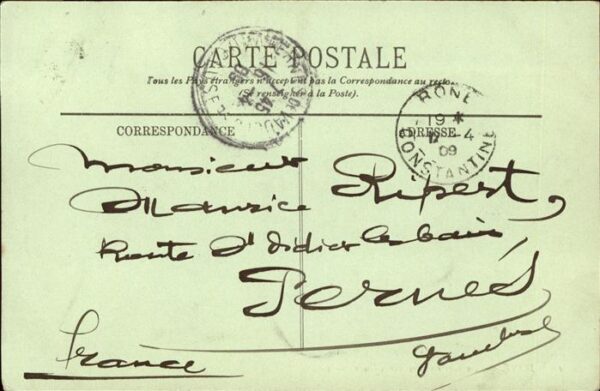 CARTE POSTALE
Tous les Pays étrangers n'acceptent pas la Correspondance au recto.
(Se renseigner à la Poste).
BONE
19 *
12-4
09
CONSTANTINE
CORRESPONDANCE
ADRESSE
Monsieur
Maurice Ripert,
Route St Didier les bains,
Pernes
France
Vaucluse